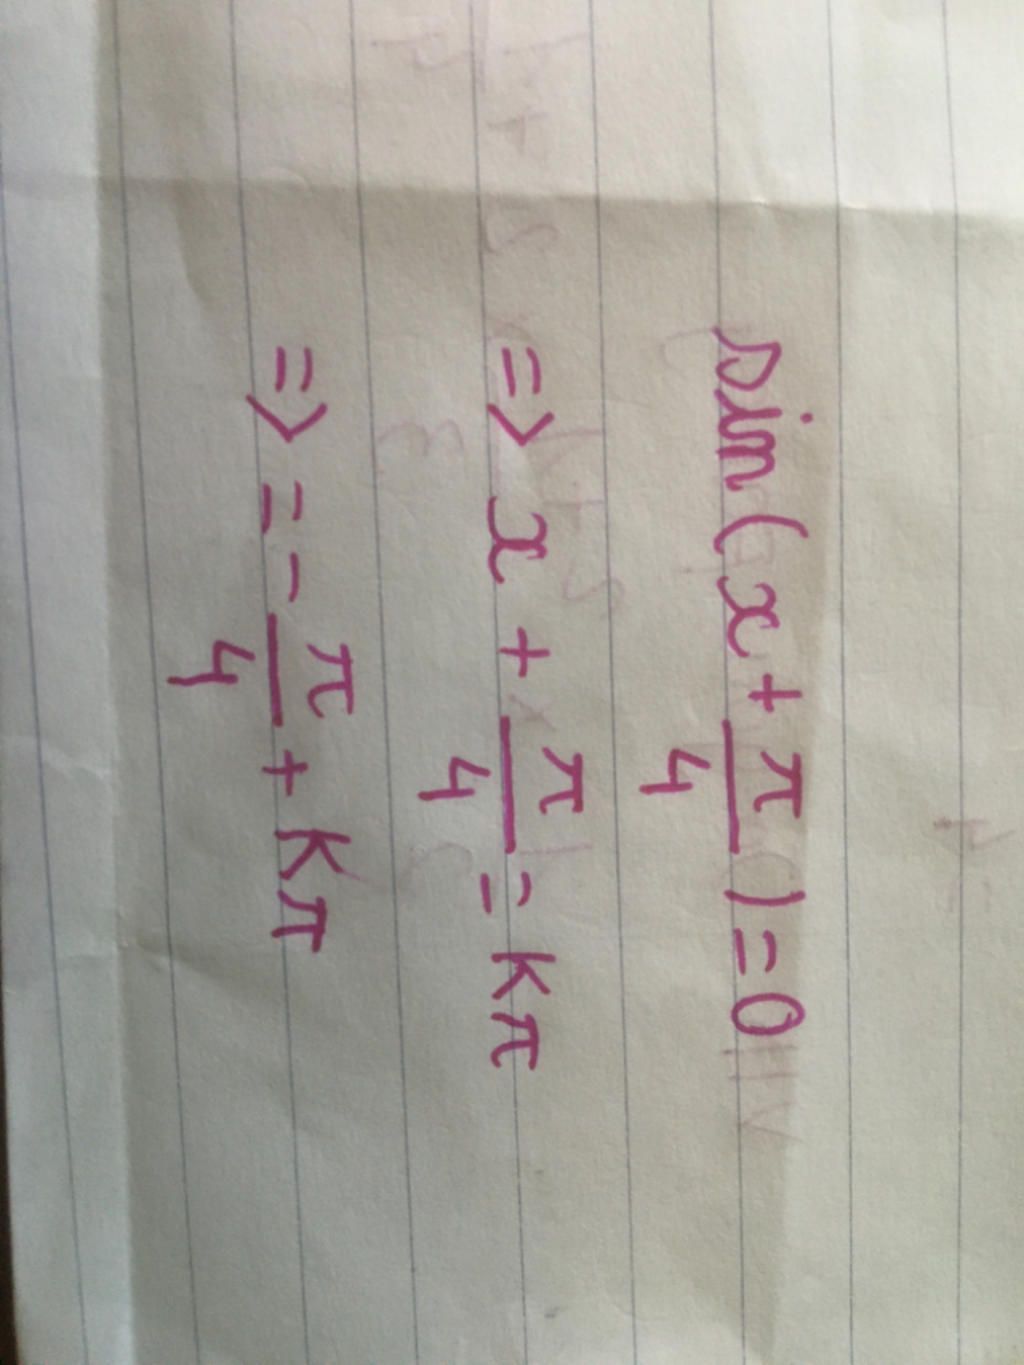 sin(x + π/4) = 0
=> x + π/4 = kπ
=> = - π/4 + kπ